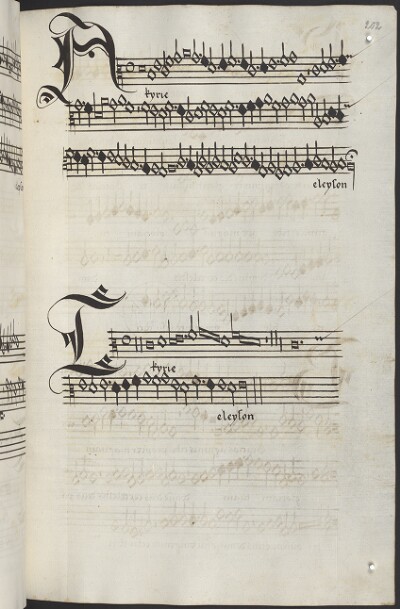 202
A
kyrie
eleyson
T
kyrie
eleyson